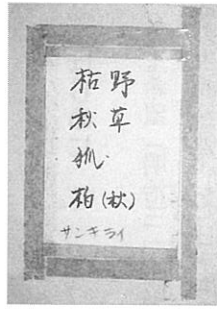 枯野
秋草
柏(秋)
サンキライ